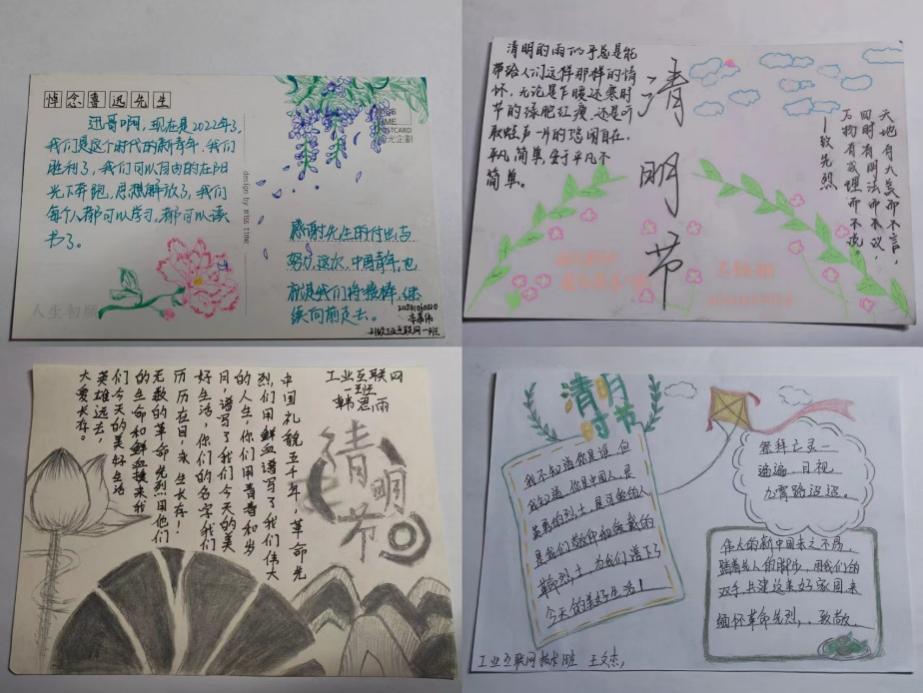 悼念鲁迅先生
迅哥啊,现在是2022年了,
我们是这个时代的新青年,我们
胜利了,我们可以自由的在阳
光下奔跑,思想解放了,我们
每个人都可以学习,都可以读
书了。
design by miss time
POSTCARD
感谢先生的付出与
努力,这次,中国青年,也
就是我们将接棒,继
续向前走去。
人生初
清明的雨似乎总是能
带给人们这样那样的情
怀,无论是乍暖还寒时
节的绿肥红瘦,还是可
平凡,简单,安于平凡不
简单。
清明节
天地有大美而不言,
四时有明法而不议,
万物有成理而不说。
—致先烈
工业互联网
一班
韩思雨
清明节
中国礼貌五千年,革命先
烈,们用鲜血谱写了我们伟大
的人生,你们用青春和岁
月,谱写了我们今天的美
好生活,你们的名字我们
历历在目,永生长存!
无数的革命先烈用他们
的生命和鲜血换来我
们今天的美好生活
英雄远去,
大爱长存。
清明
时节
我不知道你是谁,但
我知道,你是中国人,是
英勇的烈士,是可敬的人
是我们敬仰和
革命烈士,为我们谱下了
今天的美好生活!
祭拜亡灵一
遍遍,目视
九霄路迢迢。
伟大的新中国来之不易,
踏着先人的脚步,用我们的
双手,共建这美好家园来
缅怀革命先烈,致敬..
工业互联网技术班 王文杰,